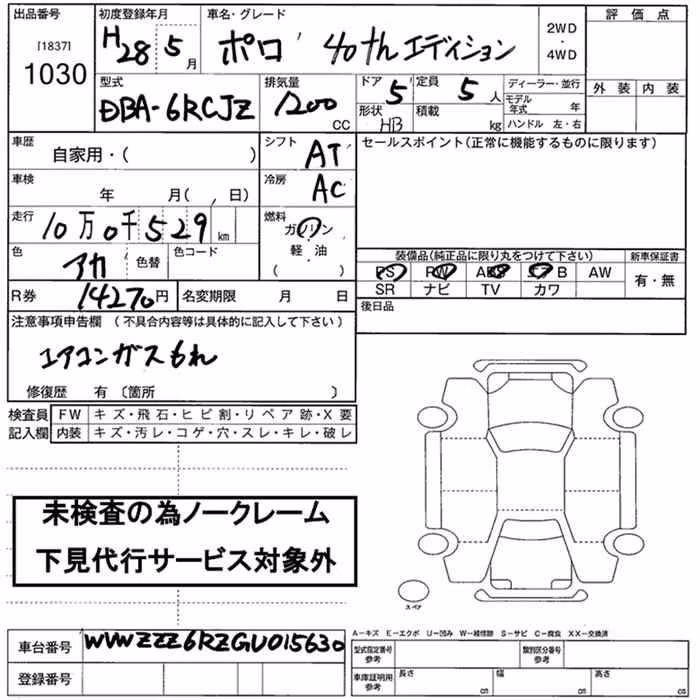 出品番号 初度登録年月 車名・グレード 評価点
[1837]
1030
H28 5月 ポロ 40th エディション 2WD ・ 4WD
型式 排気量 ドア 定員 ディーラー・並行 外装 内装
DBA-6RCJZ 1200 CC 5 5人 モデル年式 年
形状 HB 積載 kg ハンドル 左・右
車歴 自家用・( ) シフト AT セールスポイント(正常に機能するものに限ります)
車検 年 月( 、日) 冷房 AC
走行 10万0千529km 燃料 ガソリン
軽・油
( )
色 アカ 色替 色コード
装備品(純正品に限り丸をつけて下さい) 新車保証書
PS PW ABS エアB AW 有・無
SR ナビ TV カワ
R券 14270円 名変期限 月 日 後日品
注意事項申告欄 (不具合内容等は具体的に記入して下さい)
エアコンガスもれ
修復歴 有 〔箇所 〕
検査員 FW キズ・飛石・ヒビ割・リペア跡・X要
記入欄 内装 キズ・汚レ・コゲ・穴・スレ・キレ・破レ
未検査の為ノークレーム
下見代行サービス対象外
スペア
A-キズ E-エクボ U-凹み W-補修跡 S-サビ C-腐食 XX-交換済
車台番号 WVWZZZ6RZGU015630
登録番号
型式指定番号 参考 類別区分番号 参考
車庫証明用 参考 長さ ㎝ 幅 ㎝ 高さ ㎝